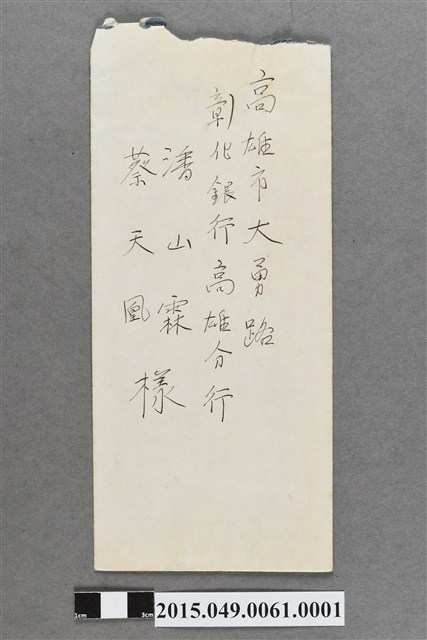 高雄市大勇路
彰化銀行高雄分行
潘山霖
蔡天凰 樣
1cm 3cm
2015.049.0061.0001